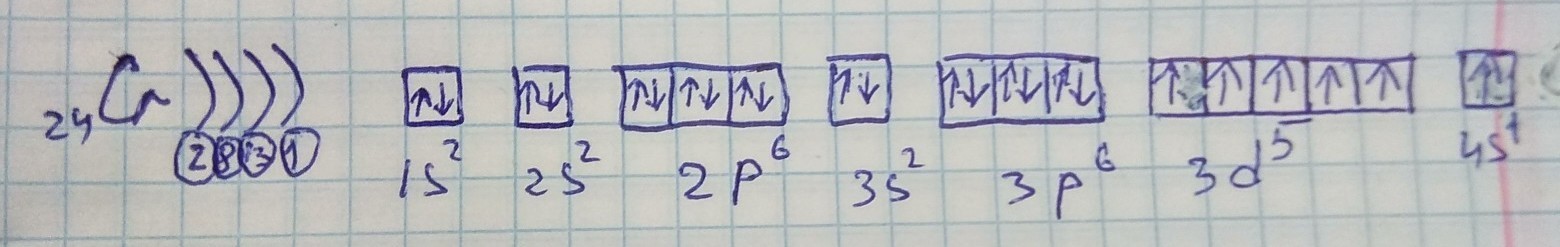 ₂₄Cr )))) ↑↓ ↑↓ ↑↓ ↑↓ ↑↓ ↑↓ ↑↓ ↑↓ ↑↓ ↑ ↑ ↑ ↑ ↑ ↑
2 8 13 1 1s² 2s² 2p⁶ 3s² 3p⁶ 3d⁵ 4s¹